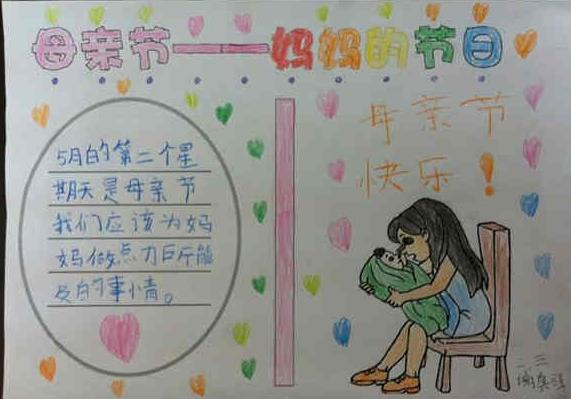 母亲节——妈妈的节日
5月的第二个星
期天是母亲节
我们应该为妈
妈做点力所能
及的事情。
母亲节
快乐！
二、三